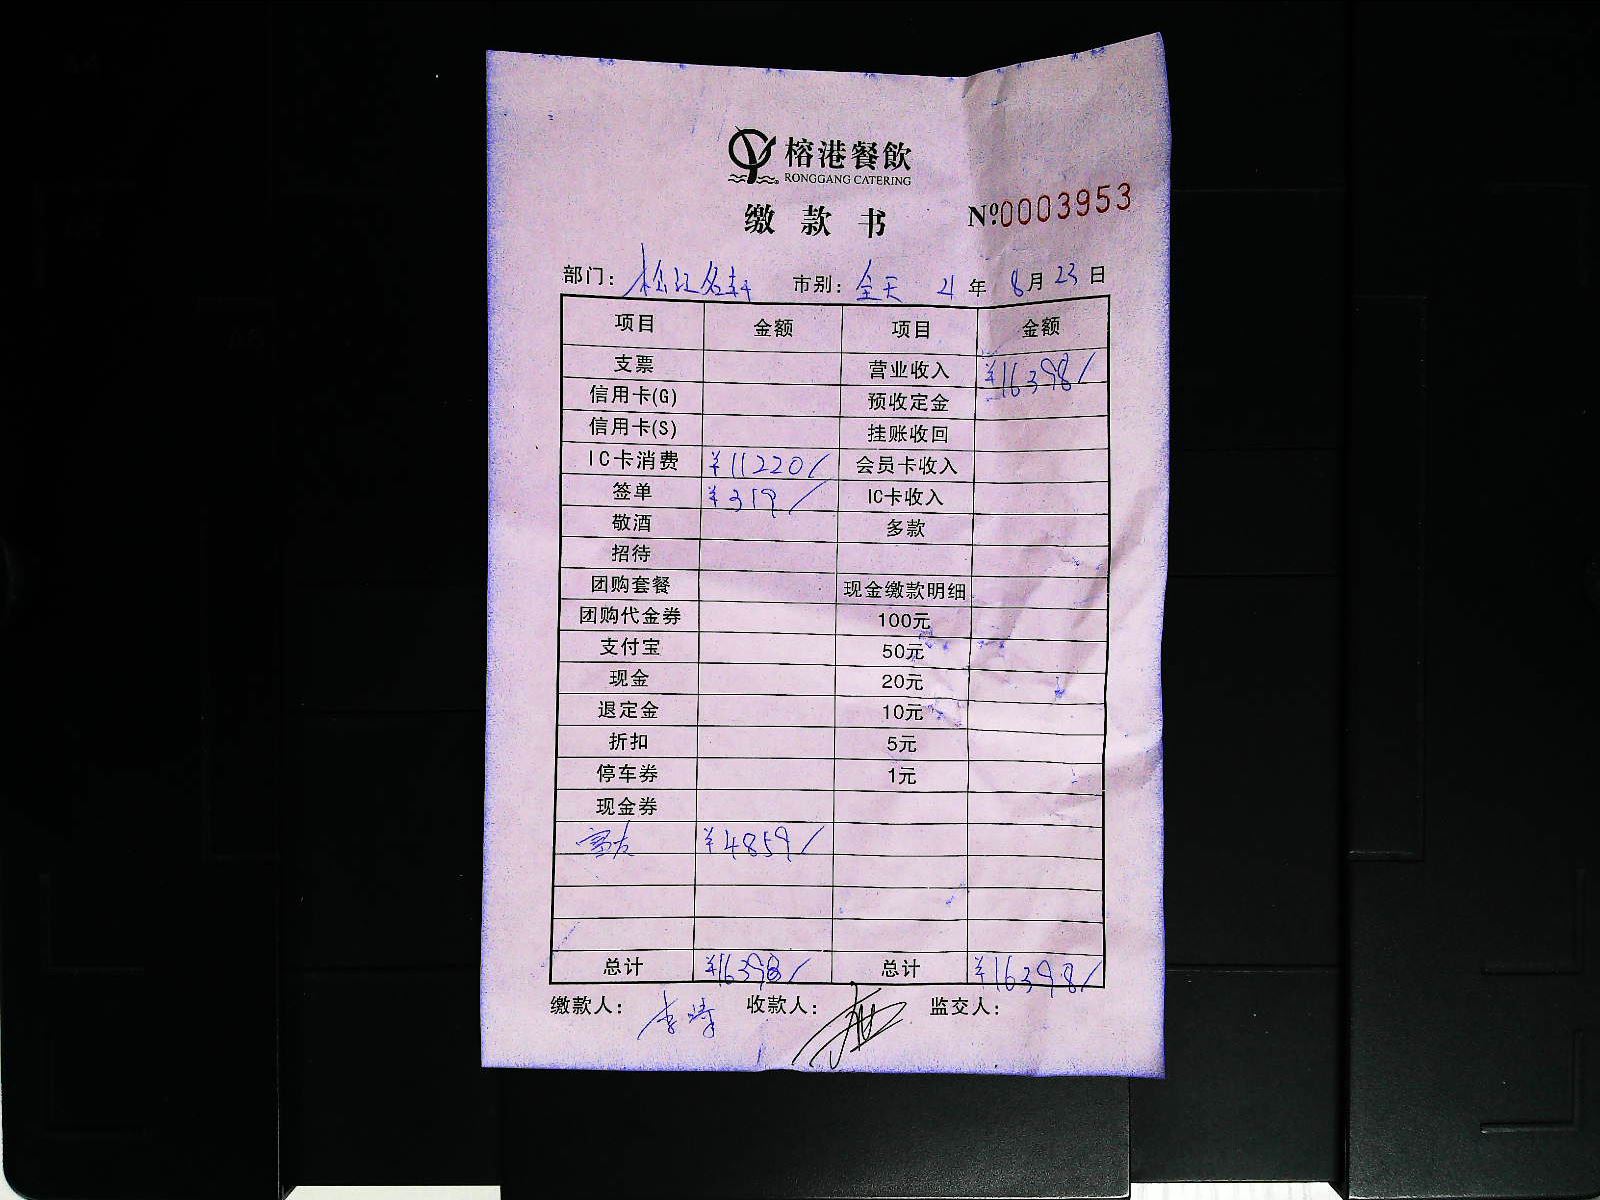 榕港餐飲
RONGGANG CATERING
缴款书 Nº0003953
部门: 松江名轩 市别: 全天 21 年 8 月 23 日
项目 金额 项目 金额
支票 营业收入 ¥16398/
信用卡(G) 预收定金
信用卡(S) 挂账收回
IC卡消费 ¥11220/ 会员卡收入
签单 ¥319/ IC卡收入
敬酒 多款
招待
团购套餐 现金缴款明细
团购代金券 100元
支付宝 50元
现金 20元
退定金 10元
折扣 5元
停车券 1元
现金券
¥4859/
总计 ¥16398/ 总计 ¥16398/
缴款人: 李 收款人: 监交人: